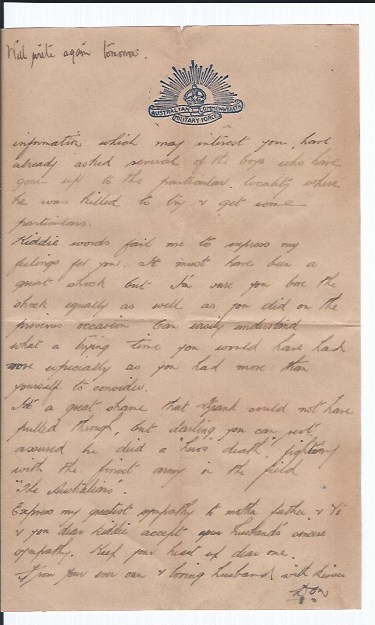 Will write again tomorrow.
AUSTRALIAN COMMONWEALTH
MILITARY FORCES
information which may interest you, have
already asked several of the boys who have
gone up to the particular locality where
he was killed to try & get some
particulars.
Kiddie words fail me to express my
feelings for you. It must have been a
great shock but I'm sure you bore the
shock equally as well as you did on the
previous occasion Can easily understand
what a trying time you would have had
more especially as you had more than
yourself to consider.
It's a great shame that Frank could not have
pulled through, but darling you can rest
assured he died a "heros death" fighting
with the finest army in the field
"The Australians"
Express my greatest sympathy to mother father &
& you dear kiddie accept your husband's sincere
sympathy. Keep your heart up dear one.
From your ever own & loving husband with kisses